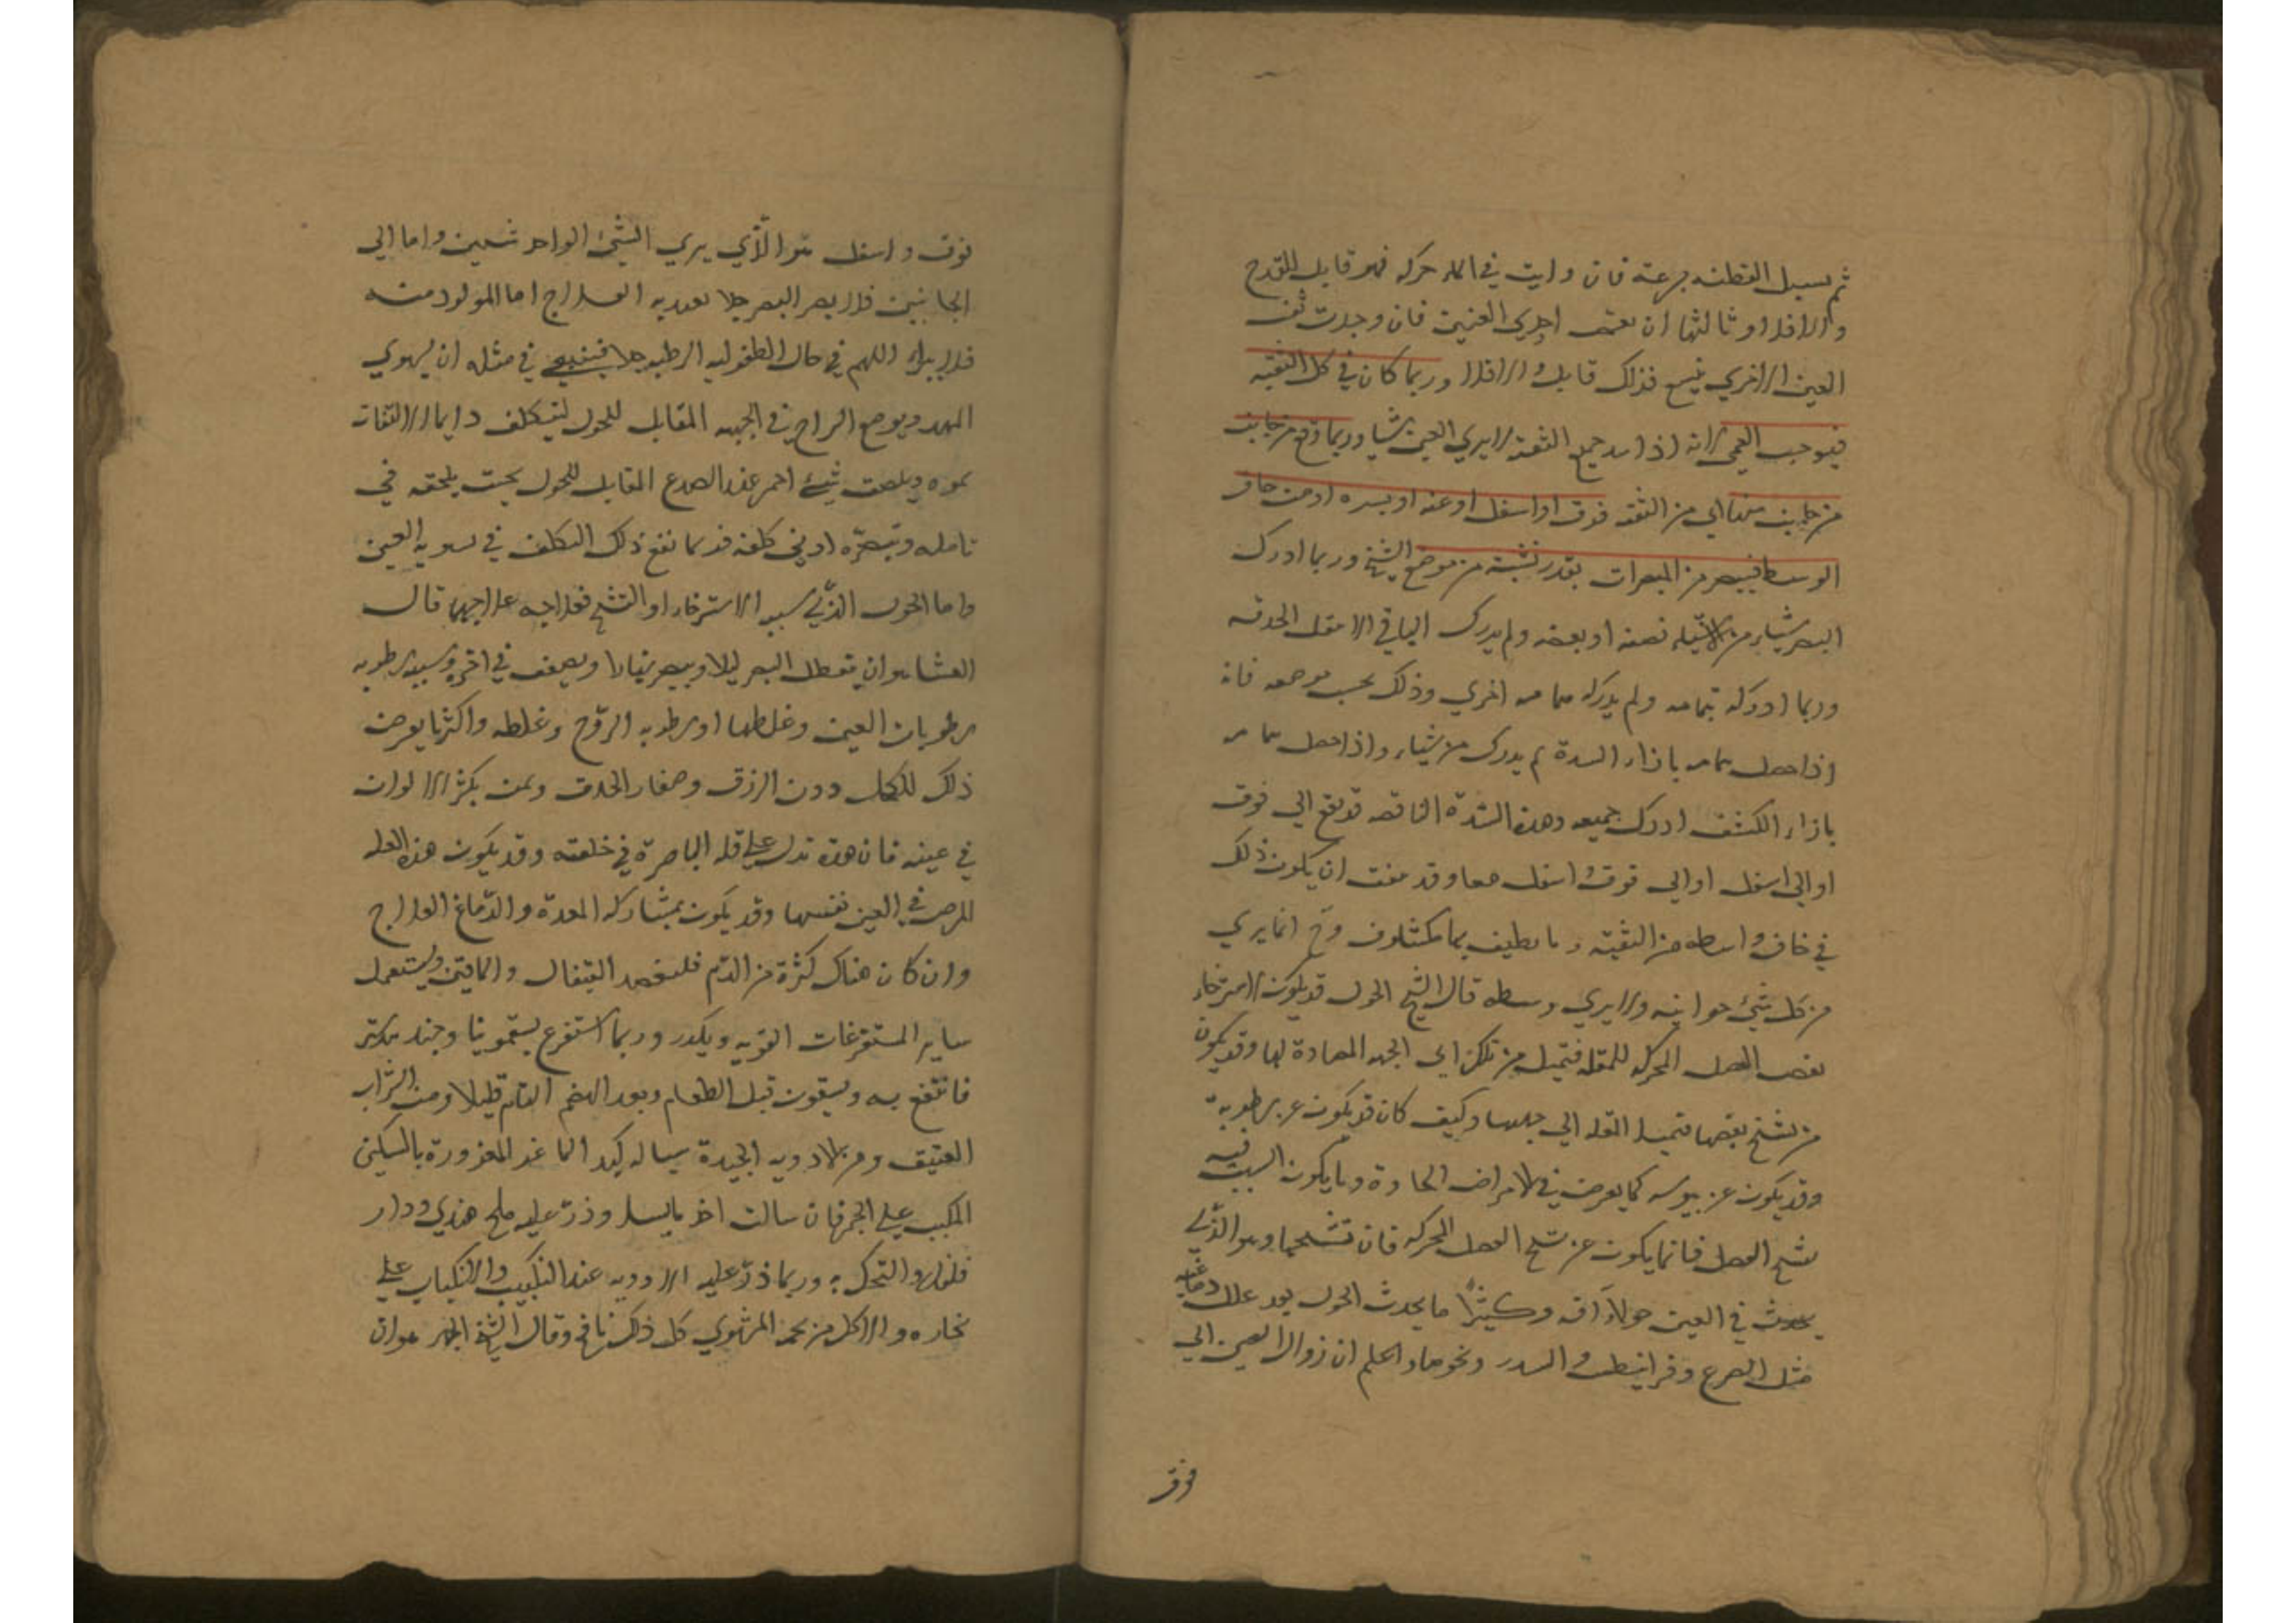 ثم يسيل القطنه بسرعته فان رايت في الماء حركه فهو قابل للقدح
والا فلا وثالثها ان تغمض احدى العينين فان وجدت ثقب
العين الاخري يتسع فذلك قابل والا فلا وربما كان في كل الثقبه
فيوجب العمى لانه اذا سد جميع الثقبة لا يري العين شيا وربما وقع من جانب
من جانب منها اي من الثقبه فوق او اسفل او يمنه او يسره او من حاق
الوسط فيبصر من المبصرات بقدر نسبته من موضع الشبح وربما ادرك
البصر شياء من الاشياء نصفه او بعضه ولم يدرك الباقي الا بنقل الحدقه
وربما ادركه بتمامه ولم يدركه بتمامه اخري وذلك بحسب موضعه فانه
اذا حصل بتمامه بازاء السدة لم يدرك من شياء واذا حصل بتمامه
بازاء الكشف ادرك جميعه وهذه السدة الناقصه قد يقع الي فوق
او الي اسفل او الي فوق و اسفل معا وقد يتفق ان يكون ذلك
في حاق واسطه من الثقبة وما يطيف بها مكشوف وح انما يري
من كل شئ جوانبه ولا يري وسطه قال الشيخ الحول قد يكون لاسترخاء
بعض العضل المحركه للمقله فتميل من تلك الي الجهه المضادة لها وقد يكون
من تشنج بعضها فتميل المقله الي جهتها وكيف كان قد يكون عن رطوبة
وقد يكون عن يبوسه كما يعرض في لامراض الحادة وما يكون السبب فيه
تشنج العضل فانما يكون عن تشنج العضل المحركه فان تشنجها وهو الذي
يحدث في العين حولاً افه وكثيرًا ما يحدث الحول بعد علل دماغيه
مثل الصرع وقرانيطس و السدر ونحوها واعلم ان زوال العين الي
فوق
فوق و اسفل هو الذي يري الشئ الواحد شيئين واما الي
الجانبين فلا يضر البصر ضررا يعتد به العلاج اما المولود منه
فلا يبراء اللهم في حال الطفوليه الرطبه جدا فينبغي في مثله ان يسوي
المهد ويوضع السراج في الجهه المقابله للحول ليتكلف دايما الالتفات
نحوه ويلصق شئ احمر عند الصدغ المقابل للحول بحيث يلحقه في
تامله وتبصره ادني كلفه فربما نفع ذلك التكلف في تسويه العين
واما الحول الذي سببه الاسترخاء او التشنج فعلاجه علاجهما قال
العشا هو ان يتعطل البصر ليلا ويبصر نهارا ويضعف في اخره وسببه رطوبه
رطوبات العين وغلظها او رطوبه الروح وغلظه واكثر ما يعرض
ذلك للكحل دون الزرق وصغار الحدق ولمن يكثر الالوان
في عينه فان هذه تدل علي قله الباصرة في خلقته وقد يكون هذه العله
لمرض في العين نفسها وقد يكون بمشاركه المعدة والدماغ العلاج
وان كان هناك كثرة من الدم فليفصد القيفال والماقين ويستعمل
ساير المستفرغات القويه ويكرر وربما استفرغ بسقمونيا وجندبيدستر
فانتفع به ويسقون قبل الطعام وبعد الهضم التام قليلا من الشراب
العتيق ومن الادويه الجيدة سياله كبد الماعز المغزورة بالسكين
المكبب علي الجمر فان سالت اخذ ما يسيل وذر عليه ملح هندي ودار
فلفل والتحل به وربما ذر عليه الادويه عند التكبيب والانكباب علي
بخاره والاكل من لحمه المشوي كل ذلك نافع وقال الشيخ الجهر هو ان